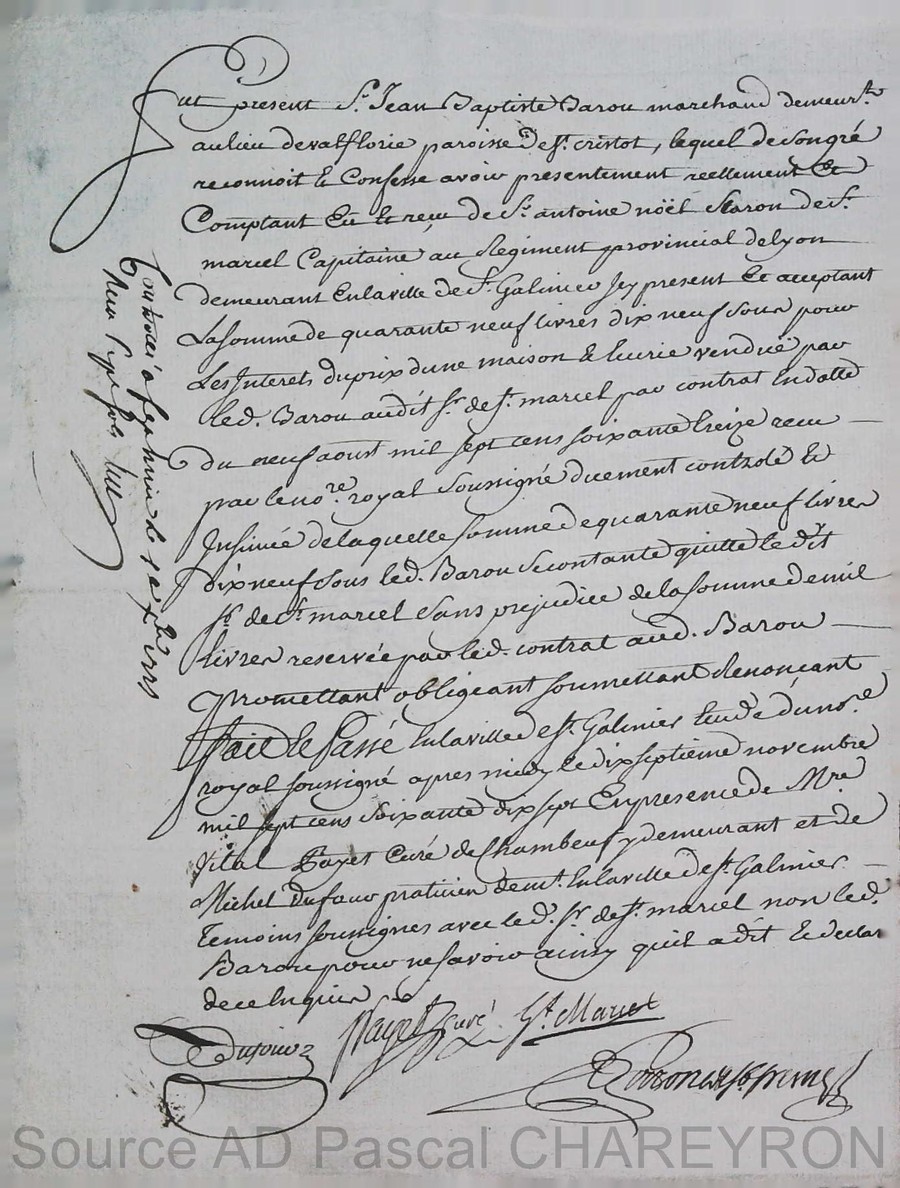 fut present Sr. Jean Baptiste Barou marchand demeurt.
au lieu de valflorie paroisse de st. cristot, lequel de son gré
reconnoit et Confesse avoir presentement reellement Et
Comptant Eu et reçu de Sr. antoine noël Staron de St.
marcel Capitaine au Regiment provincial de lyon
demeurant En la ville de St. Galmier Jcy present Et acceptant
La somme de quarante neuf livres dix neuf sous pour
Les Interets du prix dune maison & vendue par
led. Barou audit sr. de st. marcel par contrat En datte
du neuf aoust mil sept cens soixante treize recu
par le nore. royal soussigné duement controlé et
Insinué de laquelle somme de quarante neuf livres
dix neuf sous led. Barou se contante quitte le dit
sr. de st. marcel sans prejudice de la somme de mil
livres reservée par led. contrat aud. Barou
Promettant obligeant soumettant Renonçant
fait et Passé En la ville de st. Galmier Etude du nore.
royal soussigné apres midy le dix septieme novembre
mil sept cens soixante dix sept En presence de Mre
Vital Payet Curé de Chambeuf y demeurant et de
Michel Dufour praticien demt. En la ville de st. Galmier
Temoins soussignés avec led. sr. de st. marcel non led.
Barou pour ne savoir ainsy quil a dit et declar
de ce Enquis
Dufour Payet Curé St. Marcel
Controlé a st galmier le